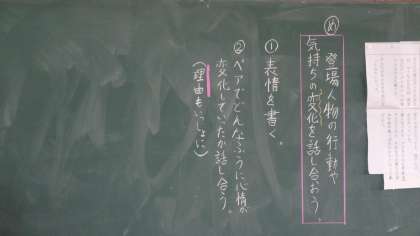 め
登場人物の行動や
気持ちの変化を話し合おう。
①表情を書く。
②ペアでどんなふうに心情が
変化していたか話し合う。
(理由もいっしょに)